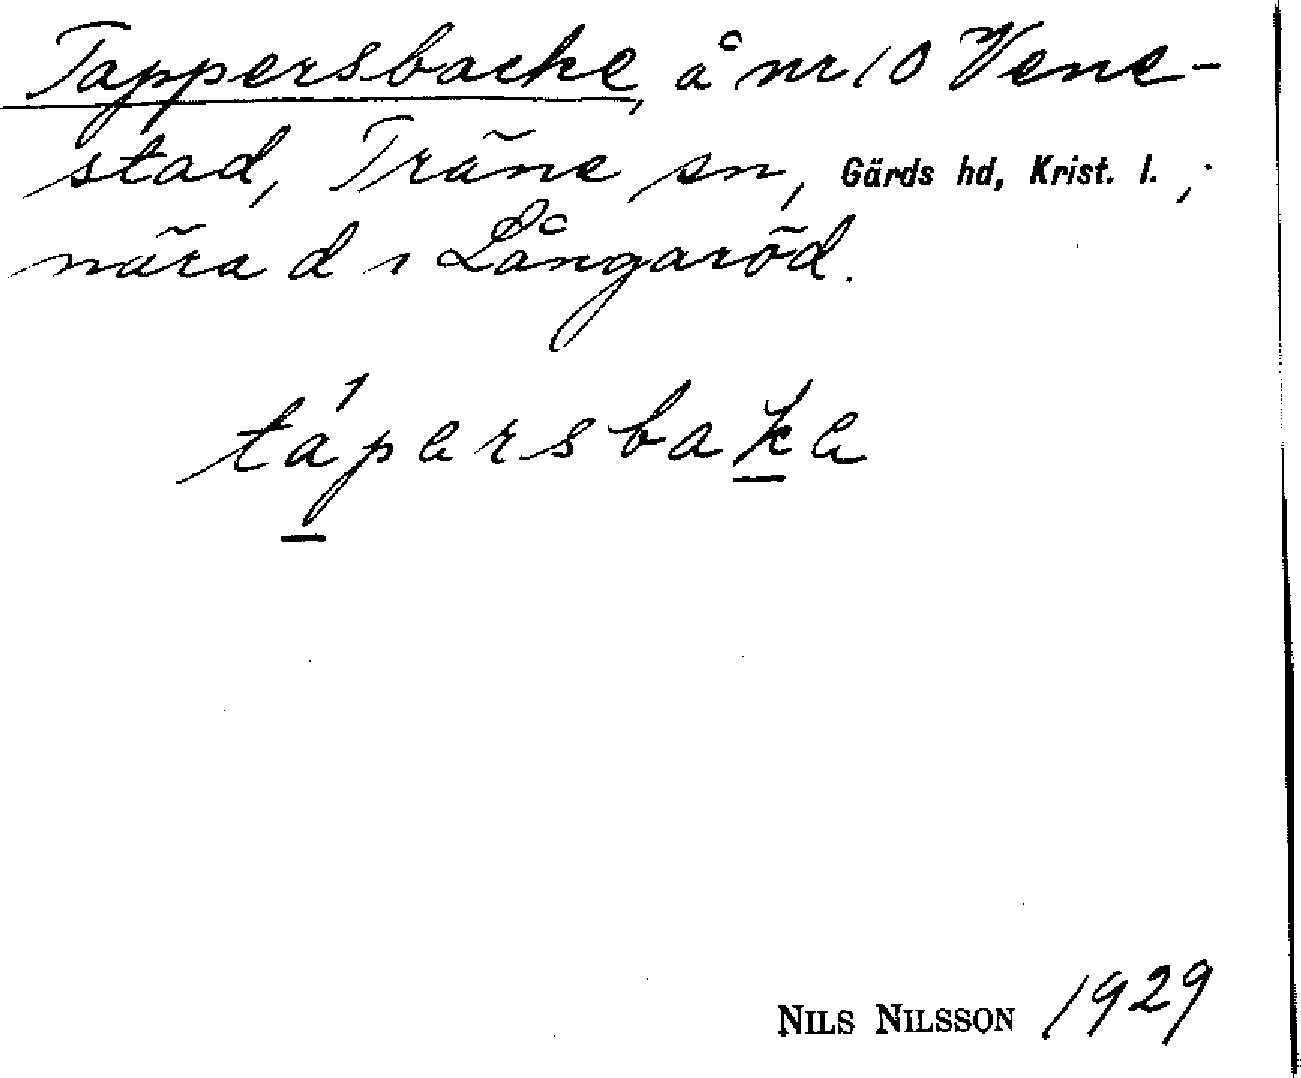 Tappersbacke, å nr 10 Vene-
stad, Träne sn, Gärds hd, Krist. l.;
nära d 1 Långaröd.
tápersbake
NILS NILSSON 1929